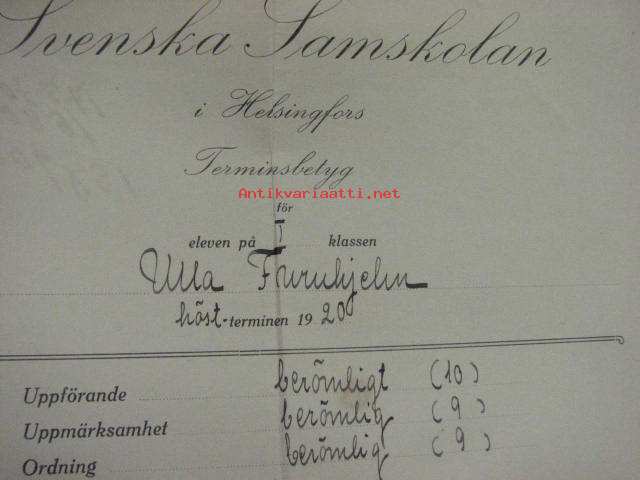 Svenska Samskolan
i Helsingfors
Terminsbetyg
Antikvariaatti.net
för
eleven på I klassen
Ulla Furuhjelm
höst-terminen 1920
Uppförande berömligt (10)
Uppmärksamhet berömlig (9)
Ordning berömlig (9)